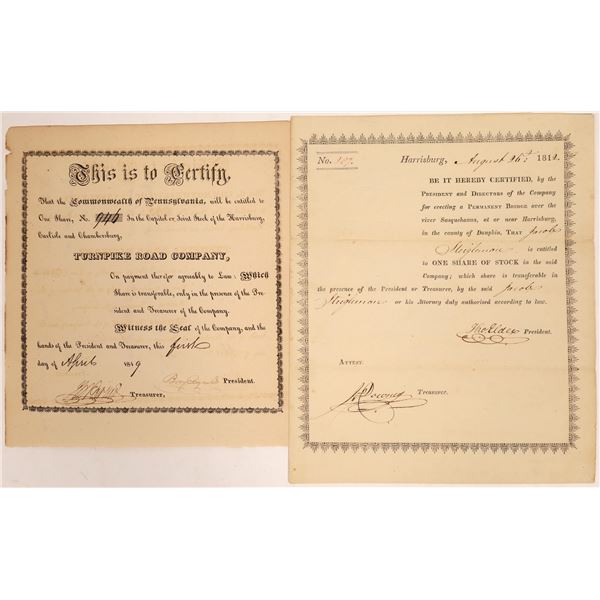 This is to Certify,
That the Commonwealth of Pennsylvania, will be entitled to
One Share, N. 944 In the Capitol or Joint Stock of the Harrisburg,
Carlisle and Chambersburg,
TURNPIKE ROAD COMPANY,
On payment therefor agreeably to Law: Which
Share is transferable, only in the presence of the Pre-
sident and Treasurer of the Company.
Witness the Seal of the Company, and the
hands of the President and Treasurer, this first
day of April 1819
President.
Treasurer,
No. 107. Harrisburg, August 26th 1812.
BE IT HEREBY CERTIFIED, by the
PRESIDENT and DIRECTORS of the Company
for erecting a PERMANENT BRIDGE over the
river Susquehanna, at or near Harrisburg,
in the county of Dauphin, THAT Jacob
is entitled
to ONE SHARE OF STOCK in the said
Company; which share is transferable in
the presence of the President or Treasurer, by the said Jacob
or his Attorney duly authorised according to law.
Tho Elder President.
ATTEST.
Downey Treasurer.